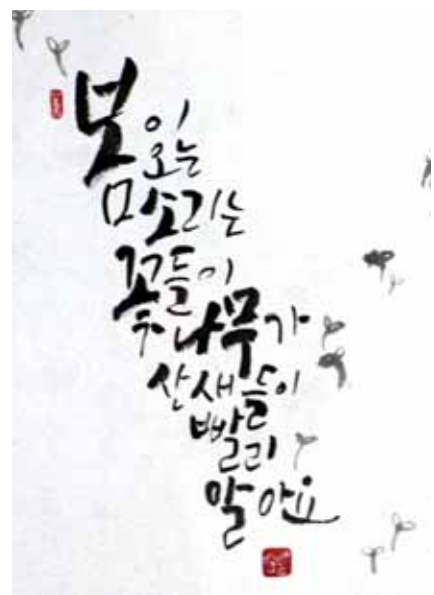 봄이
오는
소리는
꽃들이
나무가
산새들이
빨리
알아요